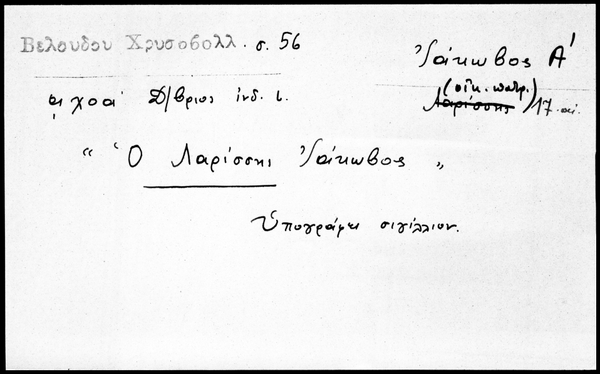 Βελουδου Χρυσοβολλ. σ. 56
Ἰάκωβος Α'
(οἰκ. πατρ.)
Λαρίσσης, 17. αἰ.
͵αχοα' Δ/βριος ἰνδ. ι.
“ Ὁ Λαρίσσης Ἰάκωβος „
Ὑπογράφει σιγίλλιον.